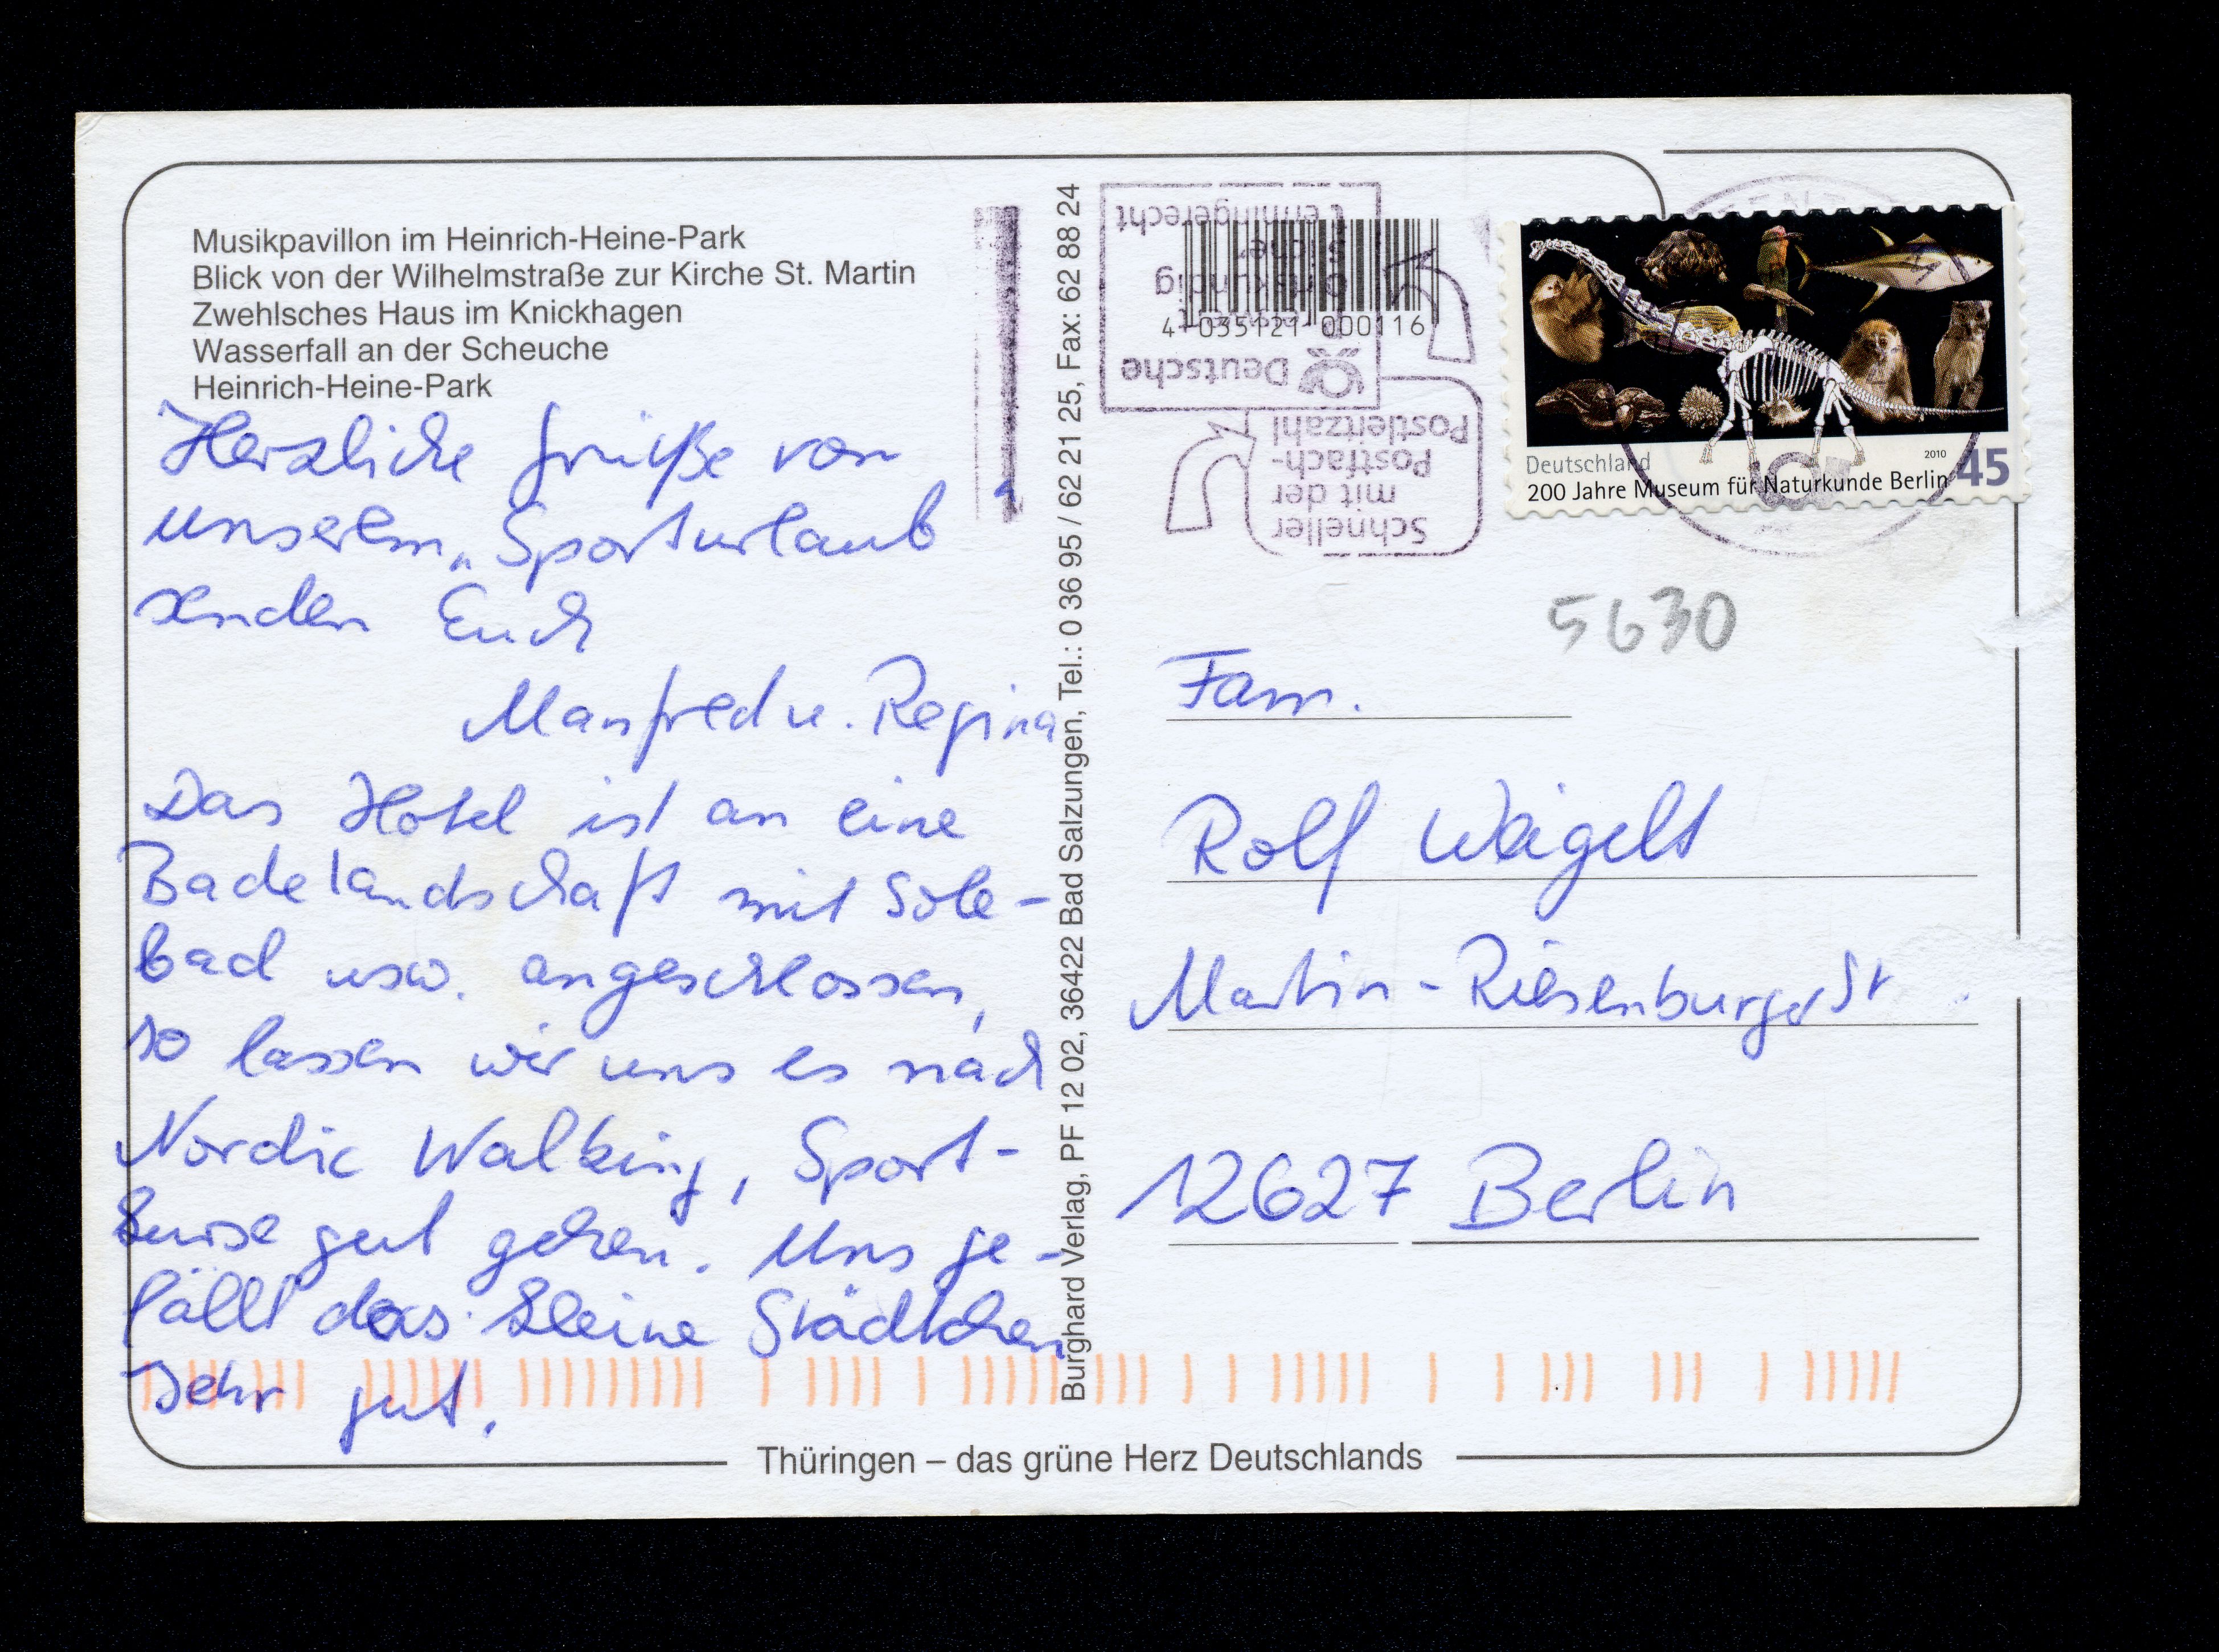 Musikpavillon im Heinrich-Heine-Park
Blick von der Wilhelmstraße zur Kirche St. Martin
Zwehlsches Haus im Knickhagen
Wasserfall an der Scheuche
Heinrich-Heine-Park
Herzliche Grüße von
unserem „Sporturlaub“
senden Euch
Manfred u. Regina
Das Hotel ist an eine
Badelandschaft mit Sole-
bad usw. angeschlossen,
so lassen wir uns es nach
Nordic Walking, Sport-
kurse gut gehen. Uns ge-
fällt das kleine Städtchen
sehr gut.
Burghard Verlag, PF 12 02, 36422 Bad Salzungen, Tel.: 0 36 95 / 62 21 25, Fax: 62 88 24
4 035121 000116
Schneller
mit der
Postfach-
Postleitzahl
Deutsche
Post
ortskundig
sicher
termingerecht
Deutschland
2010
45
200 Jahre Museum für Naturkunde Berlin
5630
Fam.
Rolf Weigelt
Martin-Riesenburger St
12627 Berlin
Thüringen – das grüne Herz Deutschlands